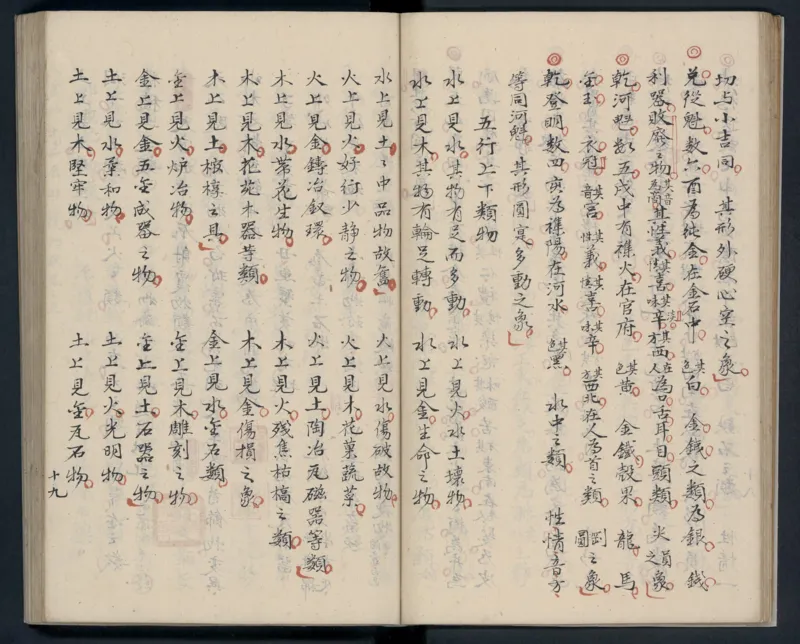 功与小吉同　其形外硬心空之象
兌從魁数六酉為純金在金石中　其色白　金鐵之類為銀　錢
利器敗廢之物其音為商其性義其情喜其味辛其方西在人為口舌耳目頭類　尖員之象
乾河魁数五戌中有襍火在官府　其色黄　金鐵殼果　龍　馬
金玉　衣冠其音宮其性義其情喜其味辛其方西北在人為首之類　圓之象
乾登明数四亥為襍陽在河水　其色黒　水中之類　性情音方
等同河魁　其形圓寔多動之象
五行上下類物
水上見水其物有足而多動　水上見火水土壊物
水上見木其物有輪足轉動　水上見金生命之物
水上見土之中品物故舊　火上見水傷破故物
火上見火好行少静之物　火上見木花菓蔬草
火上見金鑄冶釵環　火上見土陶冶瓦磁器等類
木上見水第花生物　木上見火残焦枯槁之類
木上見木花花木器等類　木上見金傷損之象
木上見土棺椁之具　金上見水金石類
金上見火炉冶物　金上見木雕刻之物
金上見金五金成器之物　金上見土石器之物
土上見水羹和物　土上見火光明物
土上見木堅牢物　土上見金瓦石物
十九